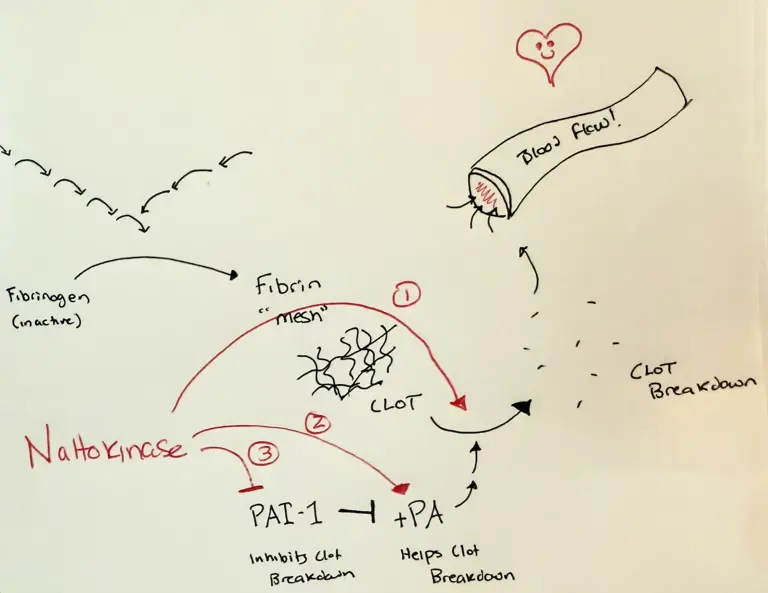 Blood Flow!
Fibrinogen
(inactive)
Fibrin
"mesh"
①
CLOT
CLOT
Breakdown
Nattokinase
②
③
PAI-1
tPA
Inhibits Clot
Breakdown
Helps Clot
Breakdown